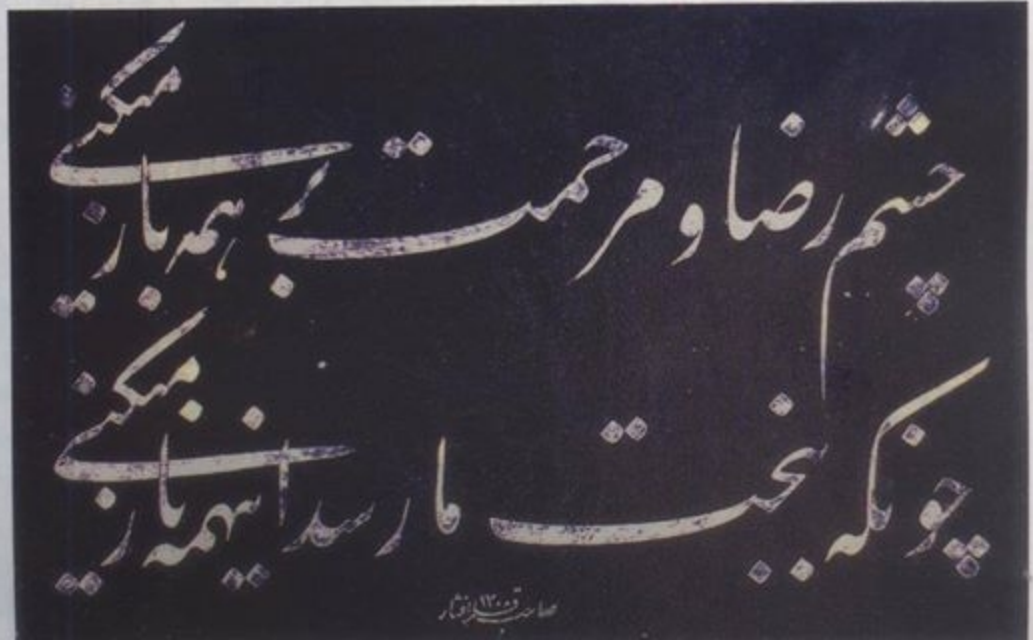 چشم رضا و مرحمت بر همه باز میکنی
چونکه ببخت ما رسد اینهمه ناز میکنی
صاحب قلم افشار